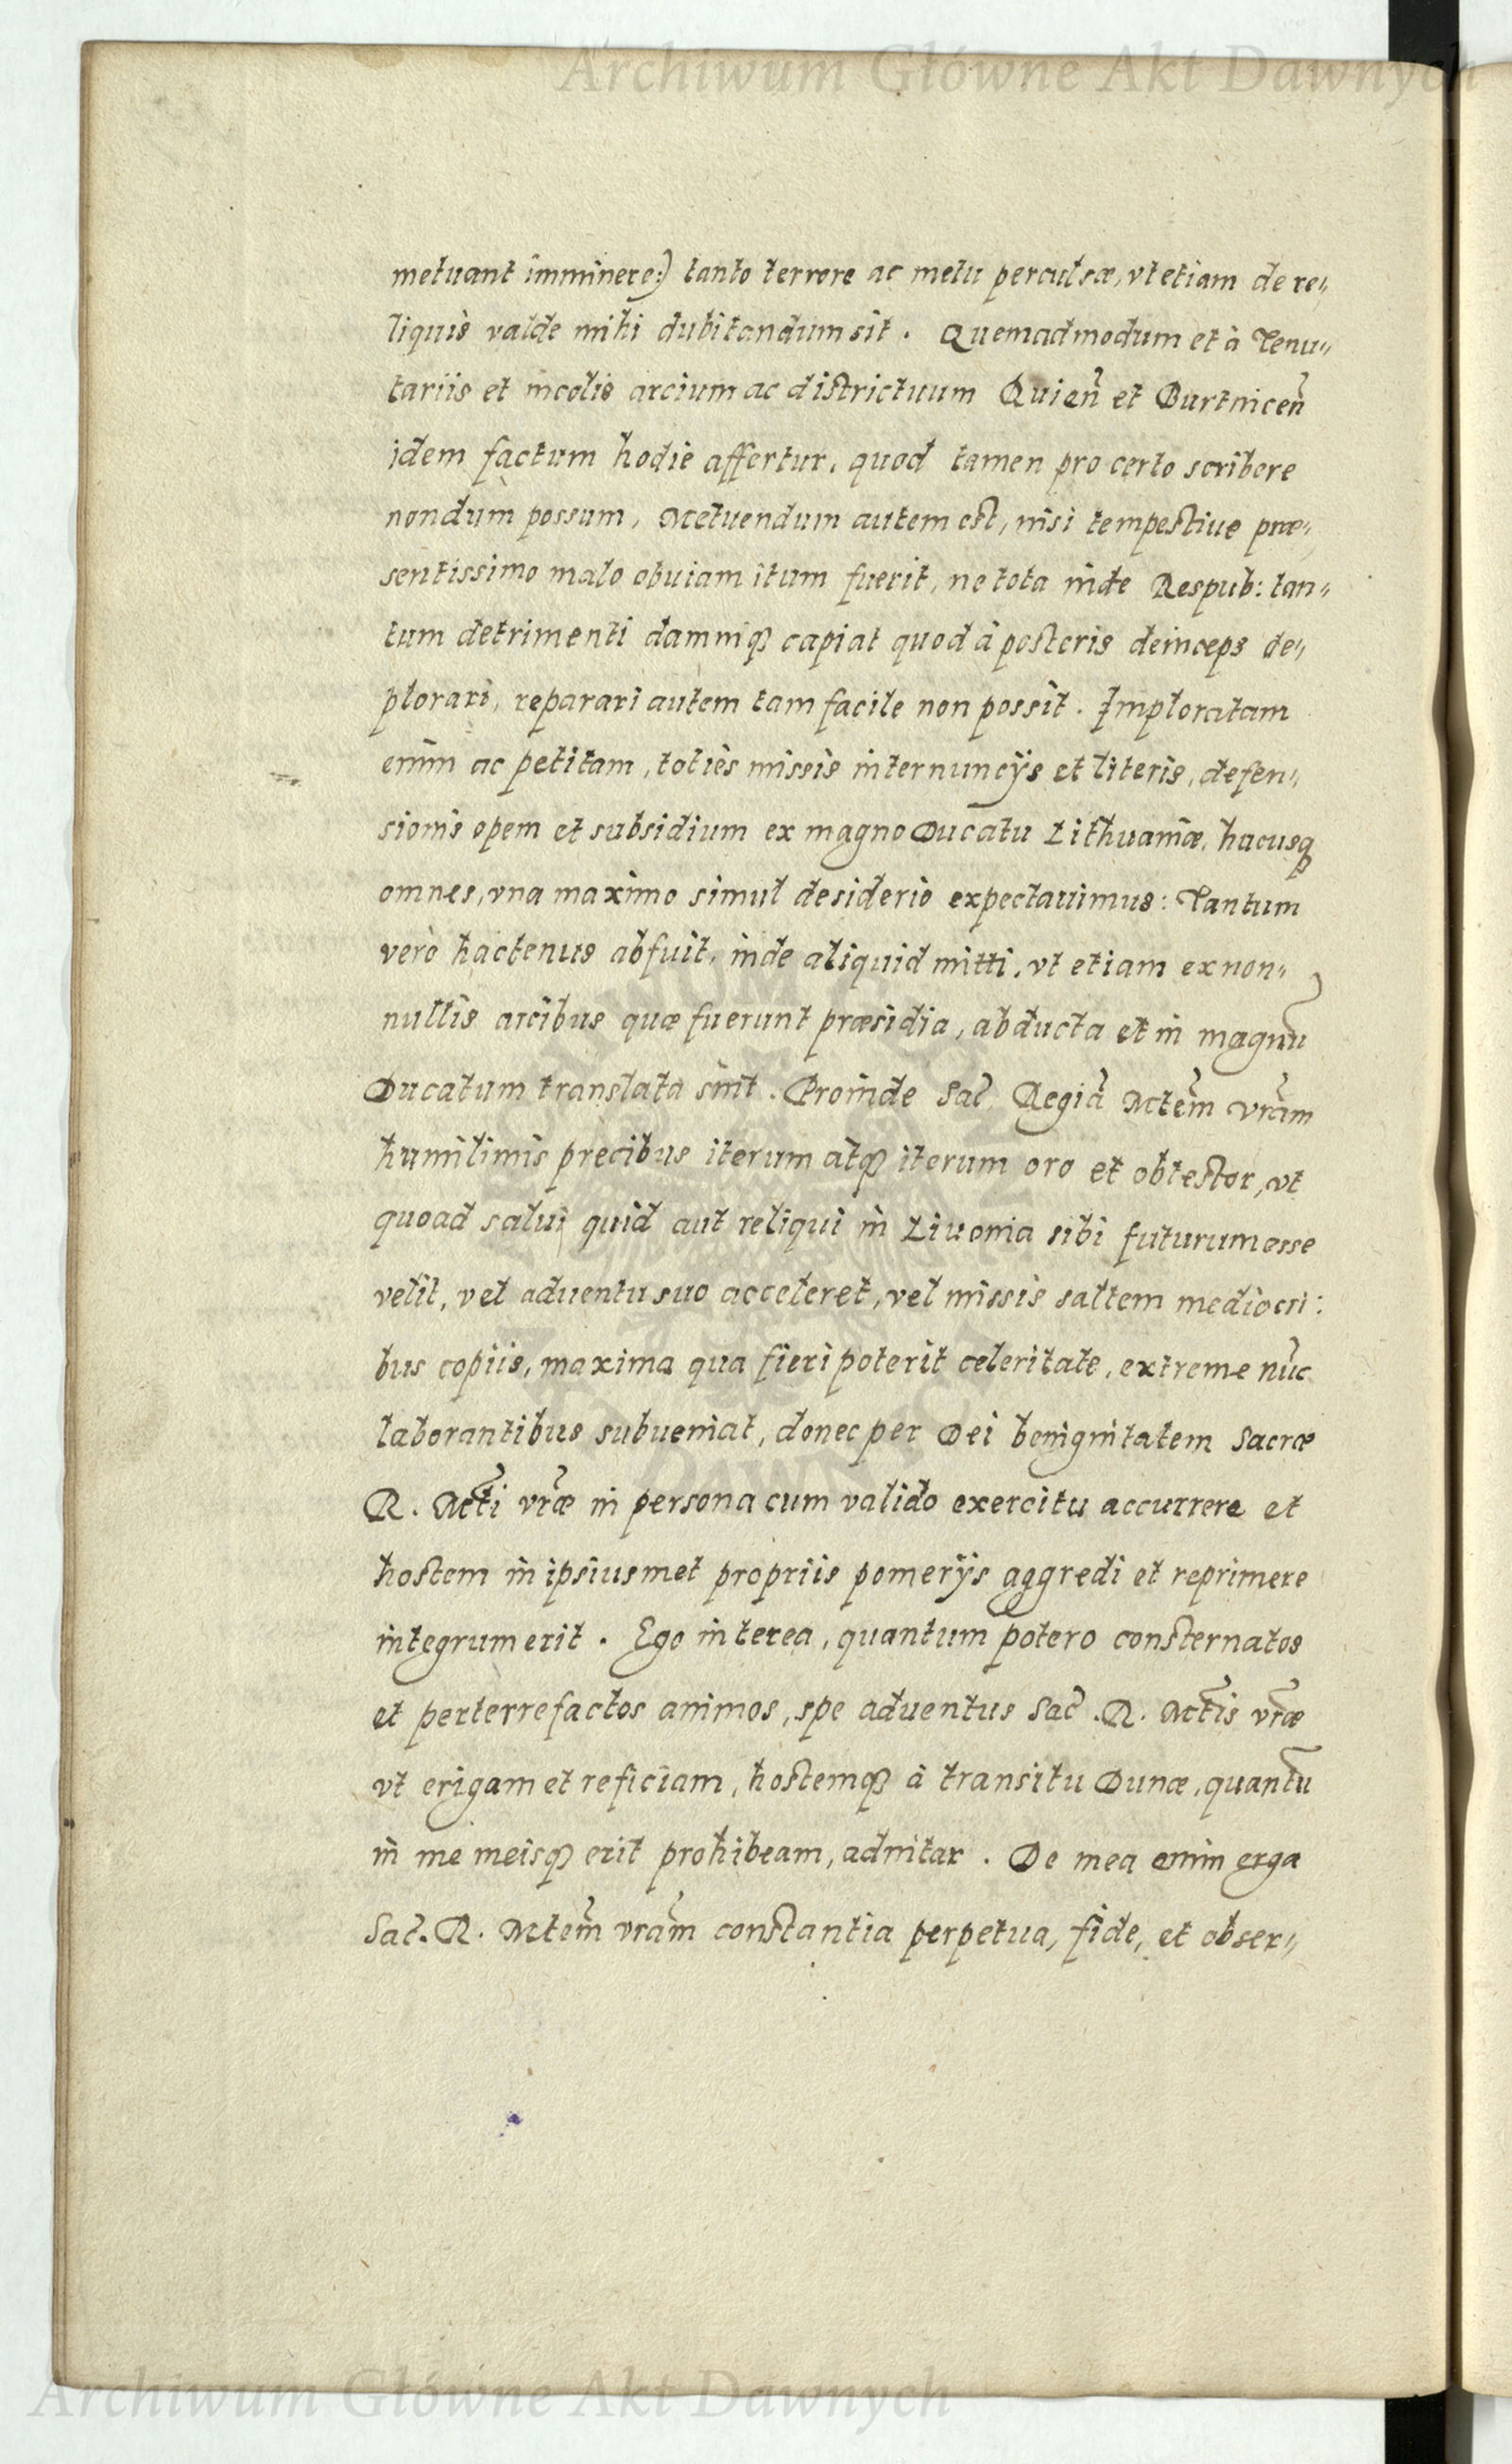 Archiwum Główne Akt Dawnych
metuant imminere:) tanto terrore ac metu perculsæ, vt etiam de re„
liquis valde mihi dubitandum sit. Quemadmodum et à Tenu„
tariis et incolis arcium ac districtuum Quień et Burtniceñ
idem factum hodie affertur, quod tamen pro certo scribere
nondum possum, Metuendum autem est, nisi tempestiue præ„
sentissimo malo obuiam itum fuerit, ne tota inde Respub: tan„
tum detrimenti damniq₃ capiat quod à posteris deinceps de„
plorari, reparari autem tam facile non possit. Imploratam
enim ac petitam, toties missis internuncijs et literis, defen„
sionis opem et subsidium ex magno Ducatu Lithuaniæ, hacusq₃
omnes, vna maximo simul desiderio expectauimus: Tantum
vero hactenus abfuit, inde aliquid mitti, vt etiam ex non„
nullis arcibus quæ fuerunt præsidia, abducta et in magnũ
Ducatum translata sint. Proinde Sac̃ Regiã Mtẽm vrãm
humilimis precibus iterum atq₃ iterum oro et obtestor, vt
quoad salui quid aut reliqui in Liuonia sibi futurum esse
velit, vel aduentu suo acceleret, vel missis saltem mediocri:
bus copiis, maxima qua fieri poterit celeritate, extreme nũc
laborantibus subueniat, donec per Dei benignitatem Sacræ
R. Mt̃i vræ̃ in persona cum valido exercitu accurrere et
hostem in ipsiusmet propriis pomerijs aggredi et reprimere
integrum erit. Ego interea, quantum potero consternatos
et perterrefactos animos, spe aduentus Sac̃. R. Mt̃is vræ̃
vt erigam et reficiam, hostemq₃ à transitu Dunæ, quantũ
in me meisq₃ erit prohibeam, adnitar. De mea enim erga
Sac̃. R. Mtẽm vrãm constantia perpetua, fide, et obser„
Archiwum Główne Akt Dawnych